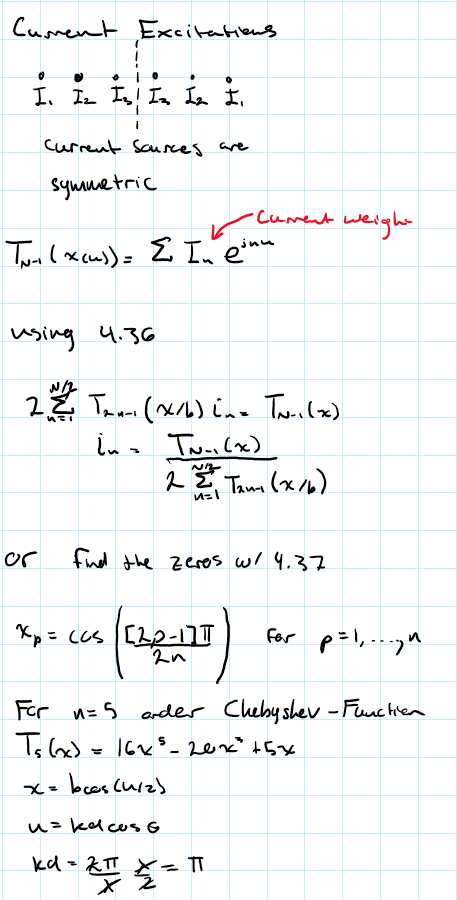 Current Excitations
I₁ I₂ I₃ I₃ I₂ I₁
Current sources are
symmetric
Current weight
T_{N-1}(x(u)) = Σ I_n e^{jnu}
using 4.36
2 Σ_{n=1}^{N/2} T_{2n-1}(x/b) i_n = T_{N-1}(x)
i_n = T_{N-1}(x) / 2 Σ_{n=1}^{N/2} T_{2n-1}(x/b)
or find the zeros w/ 4.37
x_p = cos([2p-1]π / 2n) for p=1, ...., n
For n=5 order Chebyshev-Function
T₅(x) = 16x⁵ - 20x³ + 5x
x = b cos(u/2)
u = kd cos θ
kd = 2π/λ λ/2 = π